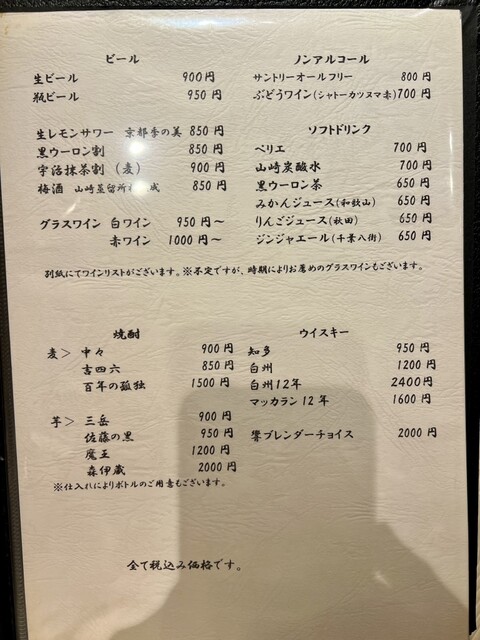 ビール
生ビール 900円
瓶ビール 950円
生レモンサワー 京都季の美 850円
黒ウーロン割 850円
宇治抹茶割（麦） 900円
梅酒 山崎蒸留所 成 850円
グラスワイン 白ワイン 950円～
赤ワイン 1000円～
ノンアルコール
サントリーオールフリー 800円
ぶどうワイン(シャトーカツヌマ赤)700円
ソフトドリンク
ペリエ 700円
山崎炭酸水 700円
黒ウーロン茶 650円
みかんジュース(和歌山) 650円
りんごジュース(秋田) 650円
ジンジャエール(千葉八街) 650円
別紙にてワインリストがございます。※不定ですが、時期によりお薦めのグラスワインもございます。
焼酎
麦＞ 中々 900円
吉四六 850円
百年の孤独 1500円
芋＞ 三岳 900円
佐藤の黒 950円
魔王 1200円
森伊蔵 2000円
※仕入れによりボトルのご用意もございます。
ウイスキー
知多 950円
白州 1200円
白州12年 2400円
マッカラン12年 1600円
響ブレンダーチョイス 2000円
全て税込み価格です。